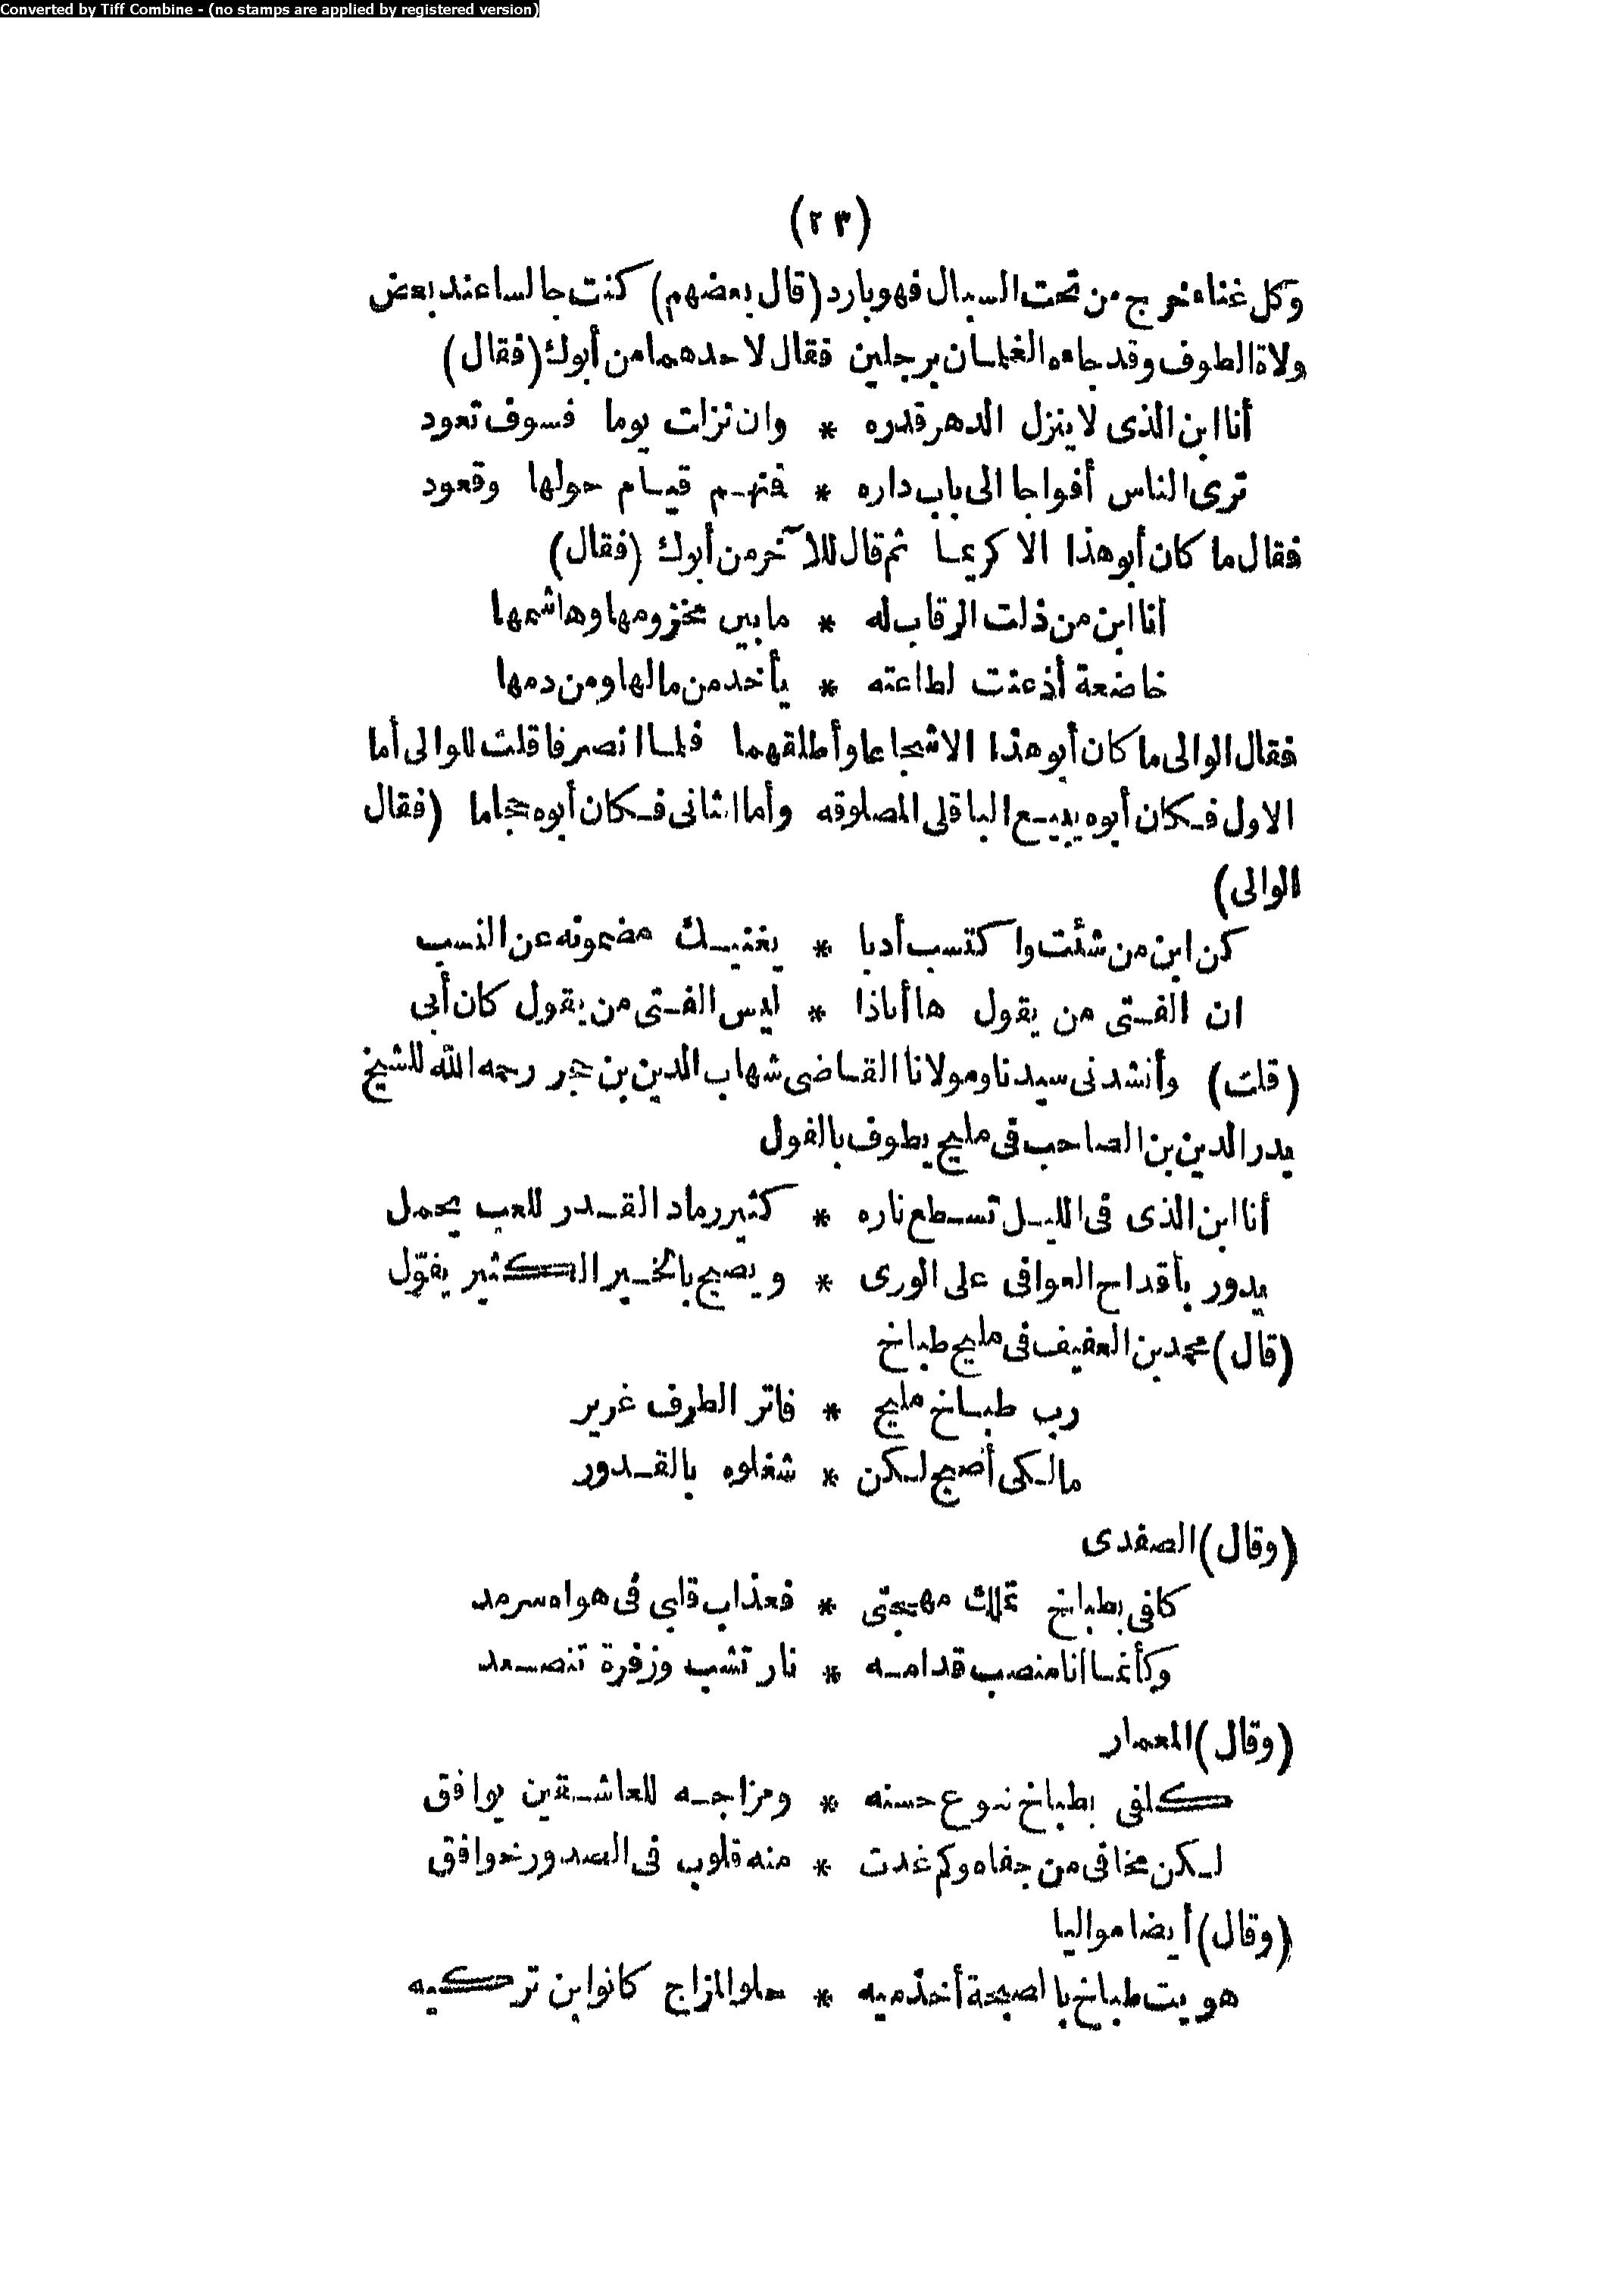 Converted by Tiff Combine - (no stamps are applied by registered version)
(٢٣)
وكل غناء خرج من تحت السبال فهو بارد (قال بعضهم) كنت جالسا عند بعض
ولاة الطوف وقد جاءه الغلمان برجلين فقال لاحدهما من أبوك (فقال)
أنا ابن الذى لا ينزل الدهر قدره * وان نزلت يوما فسوف تعود
ترى الناس أفواجا الى باب داره * فمنهم قيام حولها وقعود
فقال ما كان أبو هذا الا كريما ثم قال للآخر من أبوك (فقال)
أنا ابن من ذلت الرقاب له * ما بين مخزومها وهاشمها
خاضعة أذعنت لطاعته * يأخذ من مالها ومن دمها
فقال الوالى ما كان أبو هذا الا شجاعا وأطلقهما فلما انصرفا قلت للوالى أما
الاول فكان أبوه يبيع الباقلى المصلوقه وأما الثانى فكان أبوه حجاما (فقال
الوالى)
كن ابن من شئت واكتسب أدبا * يغنيك مضمونه عن النسب
ان الفتى من يقول ها أناذا * ليس الفتى من يقول كان أبى
(قلت) وأنشدنى سيدنا ومولانا القاضى شهاب الدين بن حجر رحمه الله للشيخ
بدر الدين بن الصاحب فى مليح يطوف بالفول
أنا ابن الذى فى الليل تسطع ناره * كثير رماد القدر للعب يحمل
يدور بأقداح العوافى على الورى * ويصبح بالخير الكثير يفوّل
(قال) محمد بن العفيف فى مليح طباخ
رب طباخ مليح * فاتر الطرف غرير
مالكى أصبح لكن * شغلوه بالقدور
(وقال) الصفدى
كافى بطباخ تملك مهجتى * فعذاب قلبى فى هواه سرمد
وكأنما انا منصب قدامه * نار تشب وزفرة تتصعد
(وقال) المعمار
كلفى بطباخ تنوع حسنه * ومزاجه للعاشقين يوافق
لكن مخافى من جفاه وكم غدت * منه قلوب فى الصدور خوافق
(وقال) أيضا مواليا
هويت طباخ با أخذميه * حلو المزاج كانو ابن تركيه